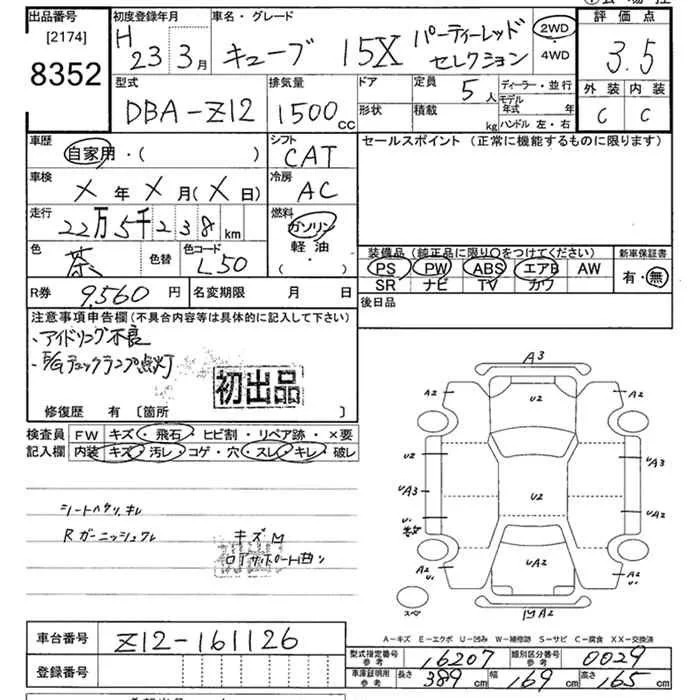 出品番号 初度登録年月 車名・グレード 評価点
[2174] H 23 3月 キューブ 15X パーティーレッド セレクション 2WD 4WD 3.5
8352
型式 排気量 ドア 定員 5人 ディーラー・並行 外装 内装
DBA-Z12 1500cc 形状 積載 kg モデル年式 年 ハンドル 左・右 C C
車歴 シフト セールスポイント (正常に機能するものに限ります)
自家用・( ) CAT
車検 冷房
X年X月(X日) AC
走行 燃料
22万5千238km ガソリン
軽油
・( )
色 茶 色替 色コード L50
装備品(純正品に限り○をつけてください) 新車保証書
PS PW ABS エアB AW 有・無
SR ナビ TV カワ
R券 9,560円 名変期限 月 日 後日品
注意事項申告欄(不具合内容等は具体的に記入して下さい)
・アイドリング不良
・E/Gチェックランプ点灯
初出品
修復歴 有 〔箇所 〕
検査員 FW キズ・飛石・ヒビ割・リペア跡・×要
記入欄 内装 キズ・汚レ・コゲ・穴・スレ・キレ・破レ
シートヘタリ、キレ
Rガーニッシュワレ キズM
初出
ロアサポート曲リ
A3
A2 U2 A2
U2 A3
UA3 U2 UA2
U1
A2 U1 UA2 A2 U1
スペア
A2
A-キズ E-エクボ U-凹み W-補修跡 S-サビ C-腐食 XX-交換済
車台番号 Z12-161126
登録番号
型式指定番号 参考 16207 類別区分番号 参考 0029
車庫証明用 参考 長さ 389cm 幅 169cm 高さ 165cm